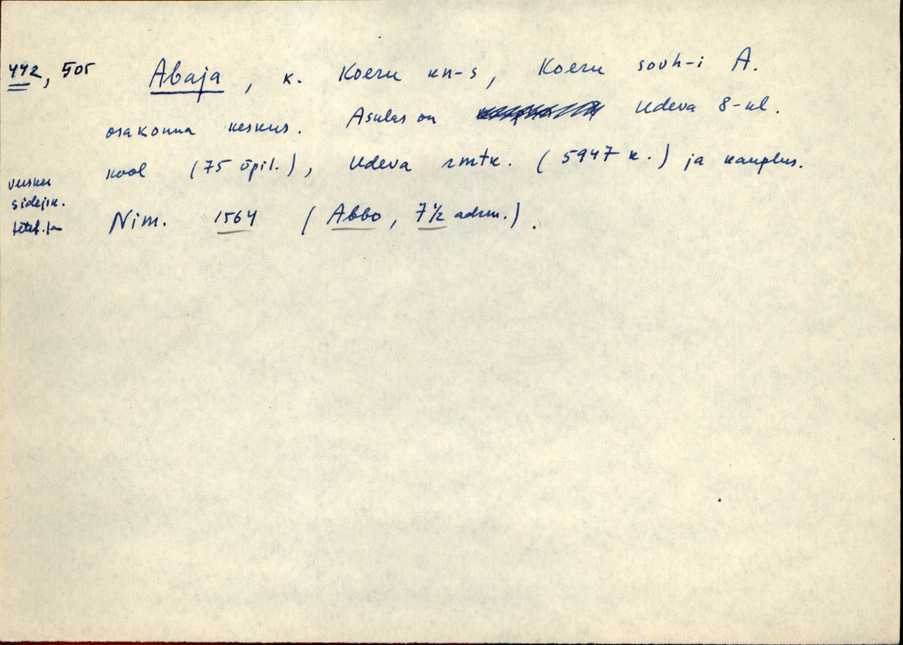 442, 505 Abaja, k. Koeru kn-s, Koeru sovh-i A.
osakonna keskus. Asulas on Udeva 8-kl.
kool (75 õpil.), Udeva rmtk. (5947 k.) ja kauplus.
sidejsk.
Nim. 1564 (Abbo, 7 1/2 adrm.).